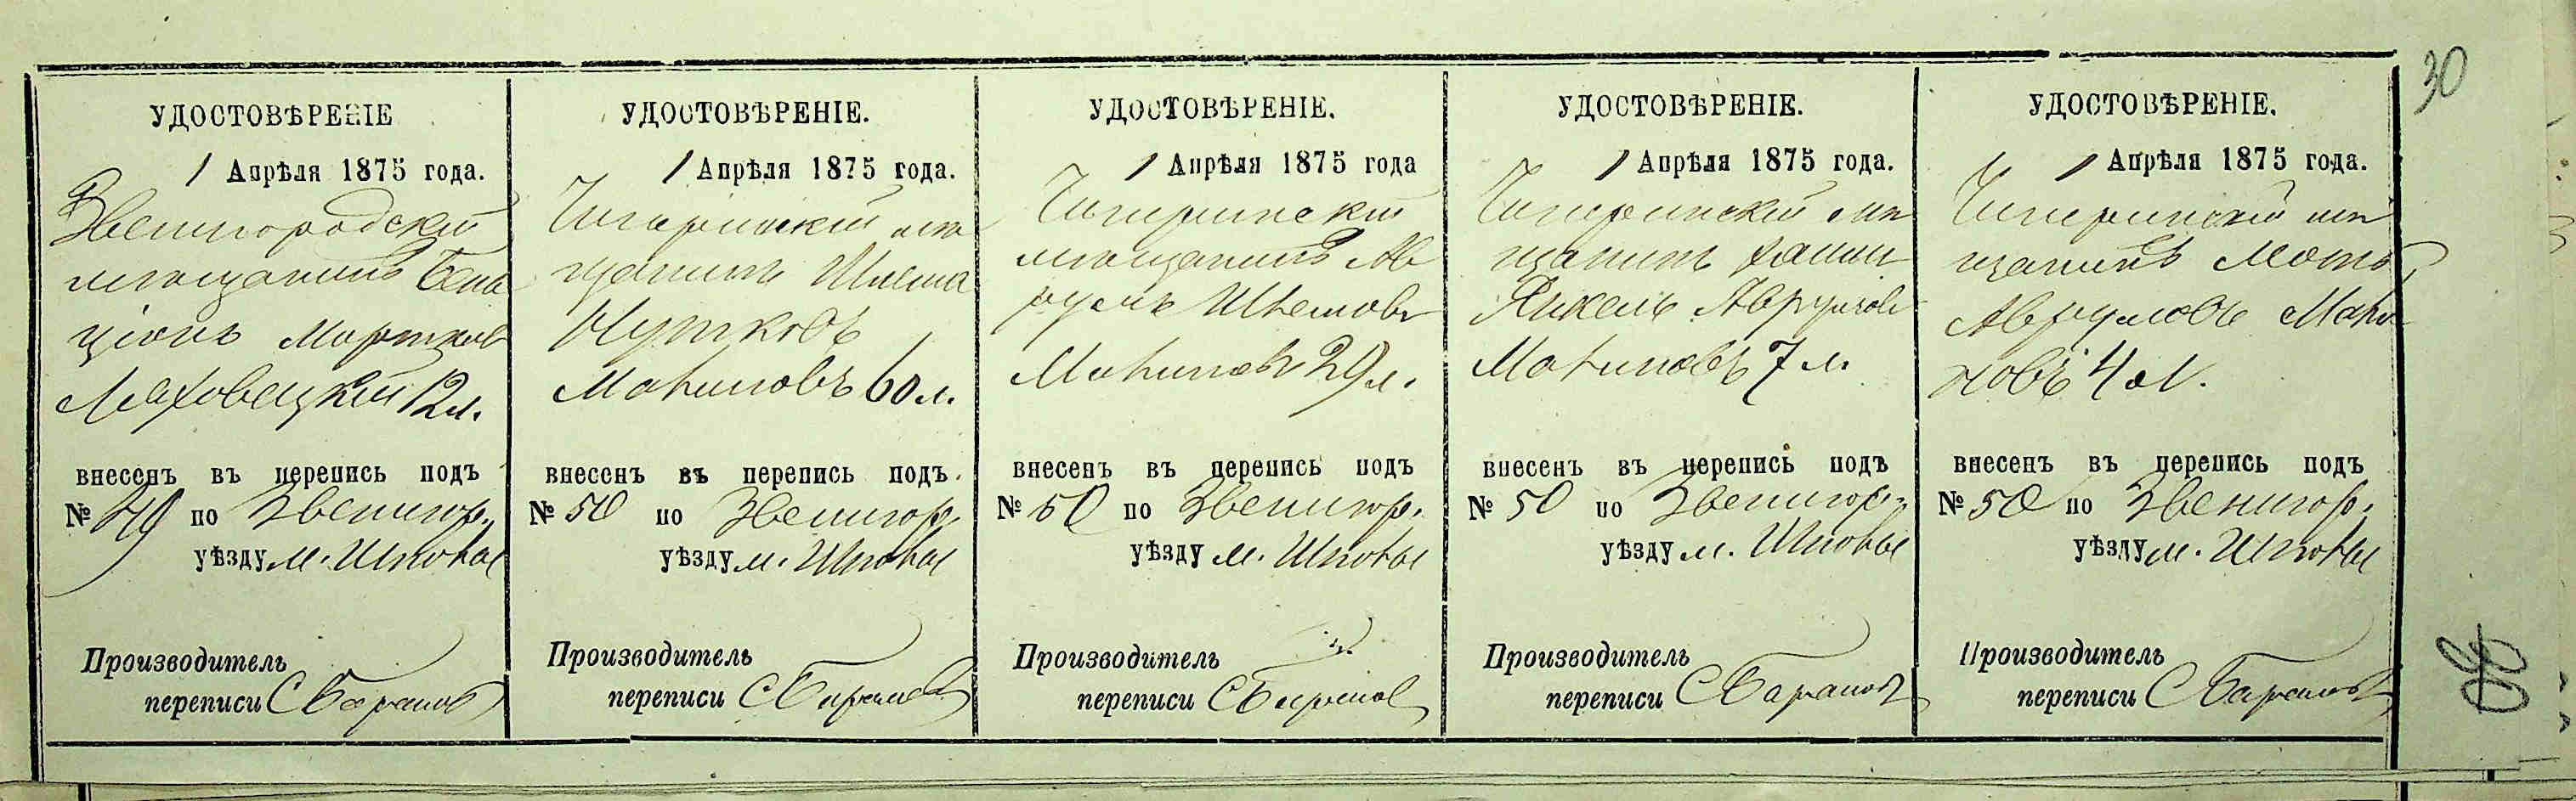 30
УДОСТОВѢРЕНІЕ
1 Апрѣля 1875 года.
Звенигородскій
мѣщанинъ Бен
ціонъ Мортков
Ляховецкій 12 л.
внесенъ въ перепись подъ
№ 49 по Звенигор.
уѣзду м. Шполы
Производитель
переписи С Баранов
УДОСТОВѢРЕНІЕ.
1 Апрѣля 1875 года.
Чигиринскій мѣ
щанинъ Шлема
60 л.
внесенъ въ перепись подъ.
№ 50 по Звенигор.
уѣзду м. Шполы
Производитель
переписи С Баранов
УДОСТОВѢРЕНІЕ.
1 Апрѣля 1875 года
Чигиринскій
мѣщанинъ Ав
румъ Шлемовъ
29 л.
внесенъ въ перепись подъ
№ 50 по Звенигор.
уѣзду м. Шполы
Производитель
переписи С Баранов
УДОСТОВѢРЕНІЕ.
1 Апрѣля 1875 года.
Чигиринскій мѣ
щанинъ Хаим
Янкель Аврумов
7 л.
внесенъ въ перепись подъ
№ 50 по Звенигор.
уѣзду м. Шполы
Производитель
переписи С Баранов
УДОСТОВѢРЕНІЕ.
1 Апрѣля 1875 года.
Чигиринскій мѣ
щанинъ Мот
Аврумовъ
новъ 4 л.
внесенъ въ перепись подъ
№ 50 по Звенигор.
уѣзду м. Шполы
Производитель
переписи С Баранов